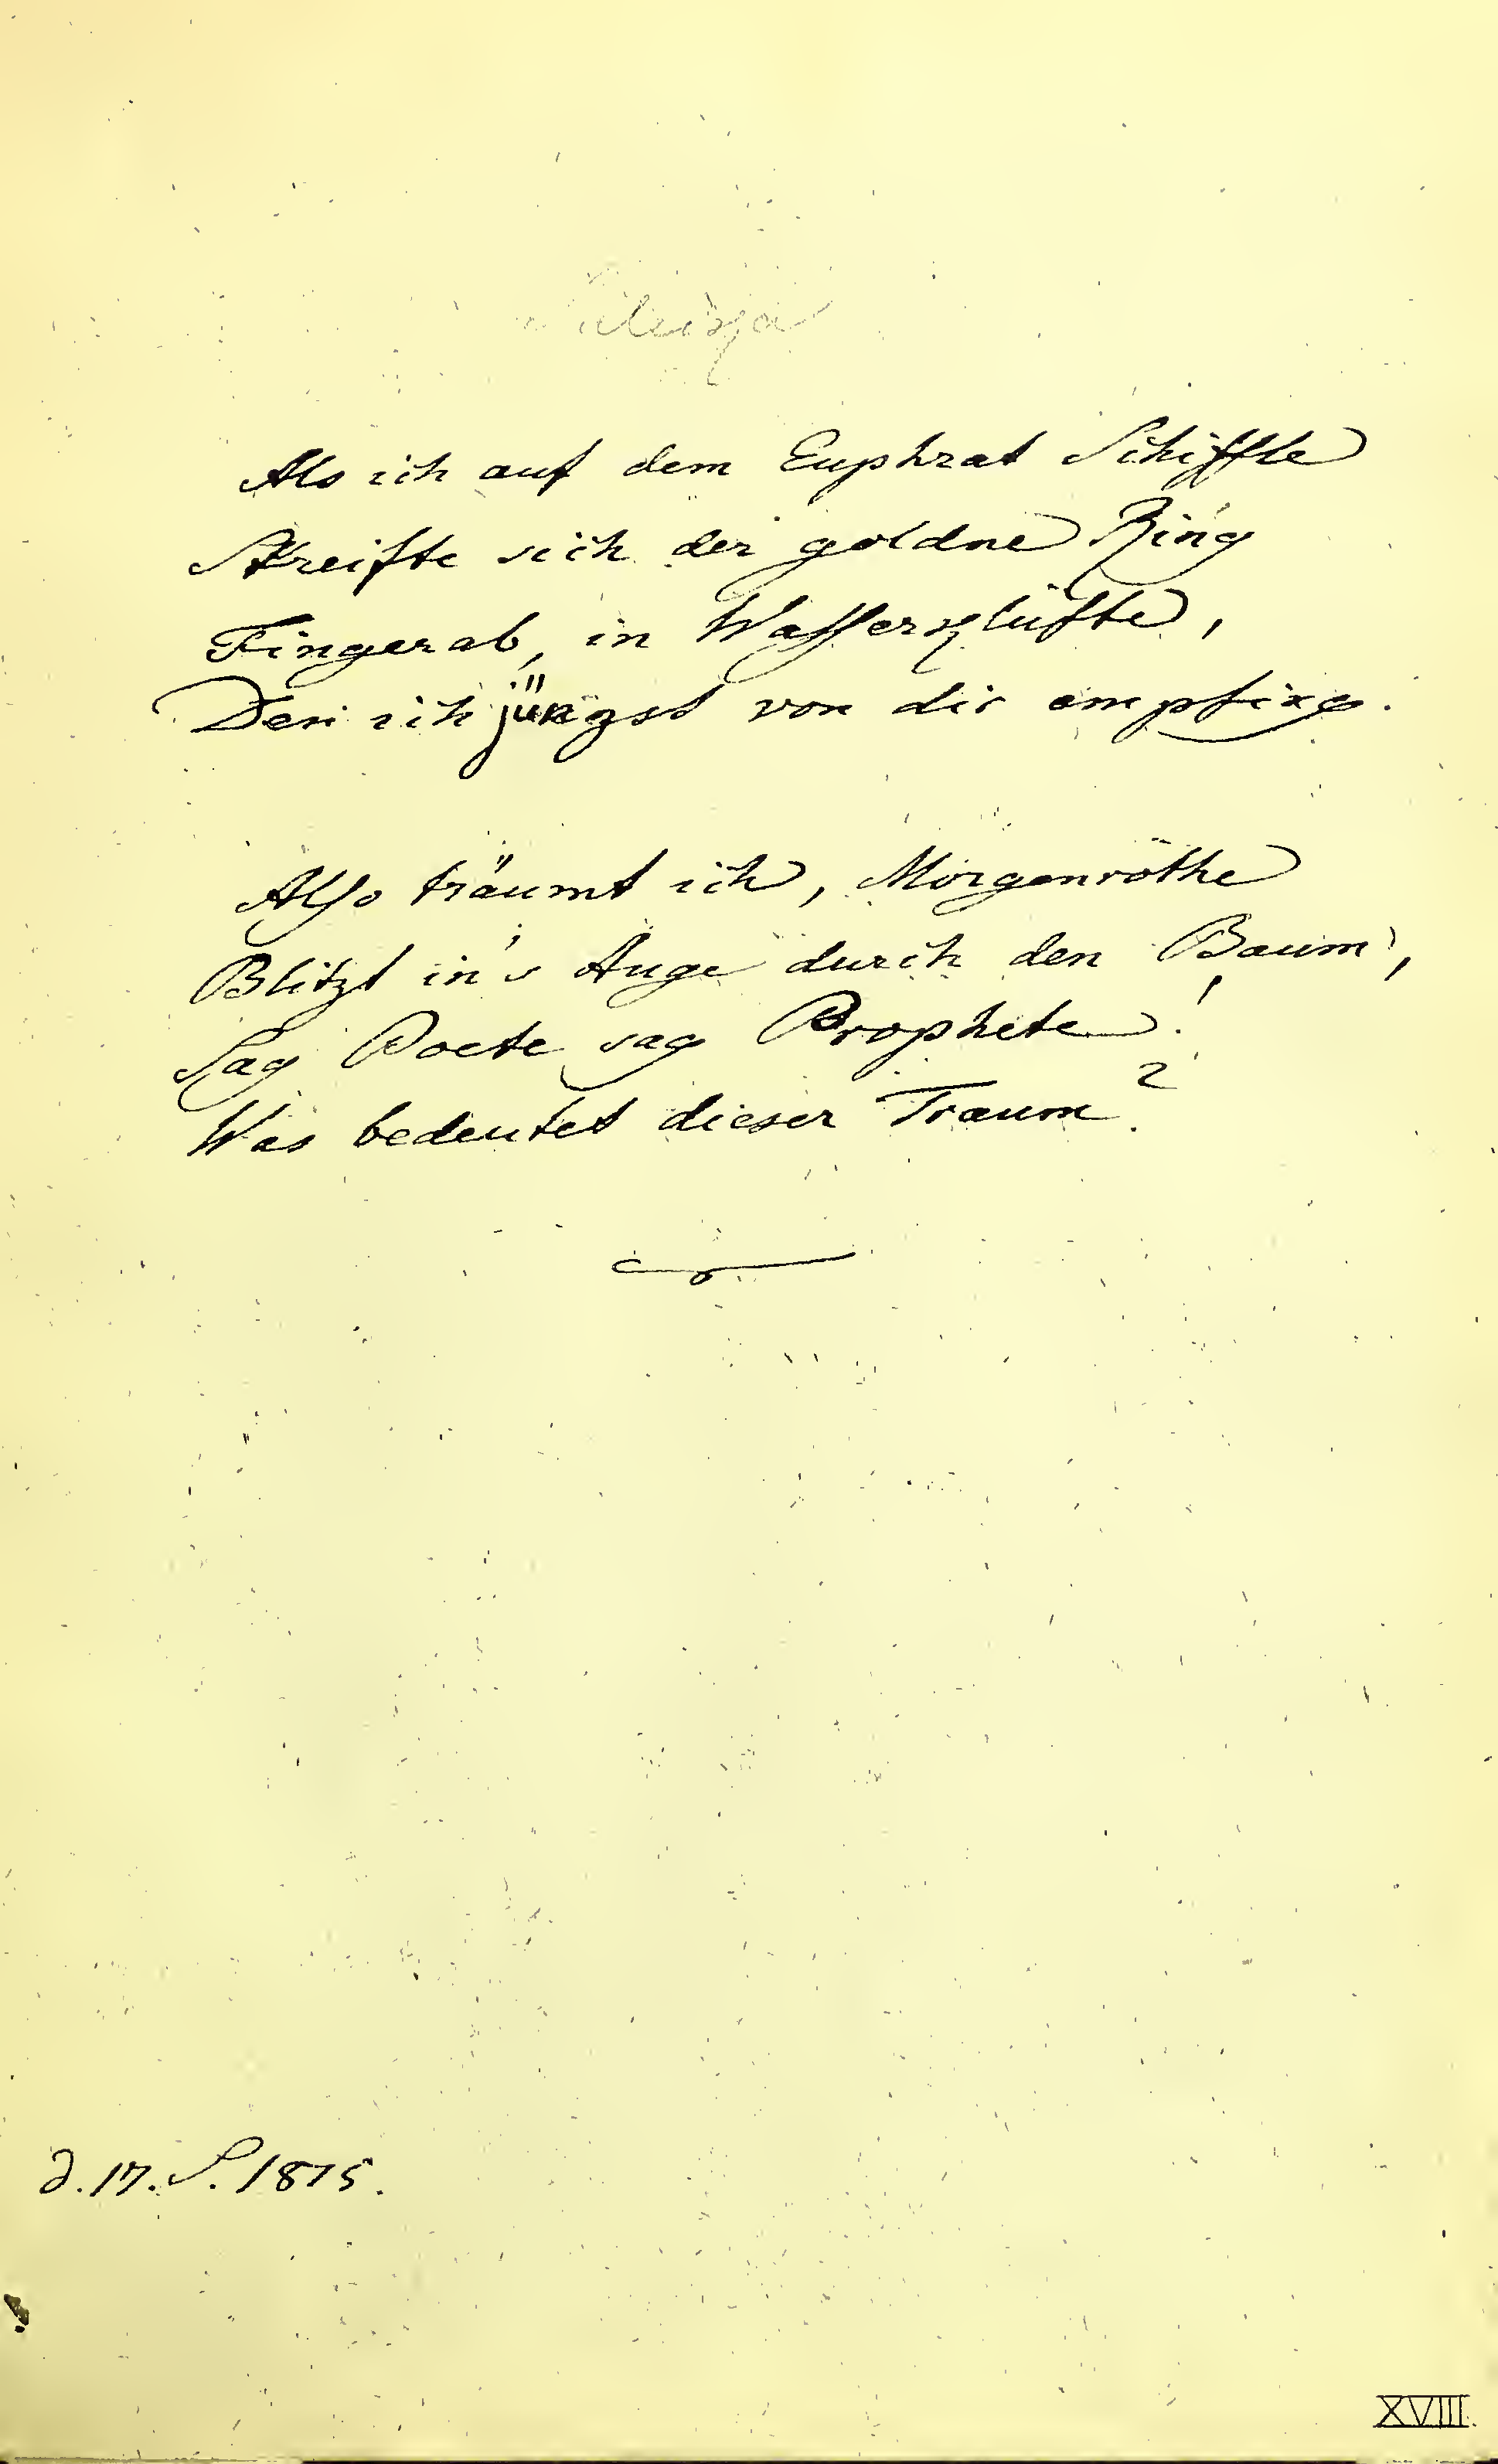 Suleika
Als ich auf dem Euphrat Schiffte
Streifte sich der goldne Ring
Fingerab, in Wasserklüfte,
Den ich jüngst von dir empfing.
Also träumt ich, Morgenröthe
Blitzt in's Auge durch den Baum,
Sag Poete sag Prophete!
Was bedeutet dieser Traum?
d. 17. S. 1815.
XVIII.